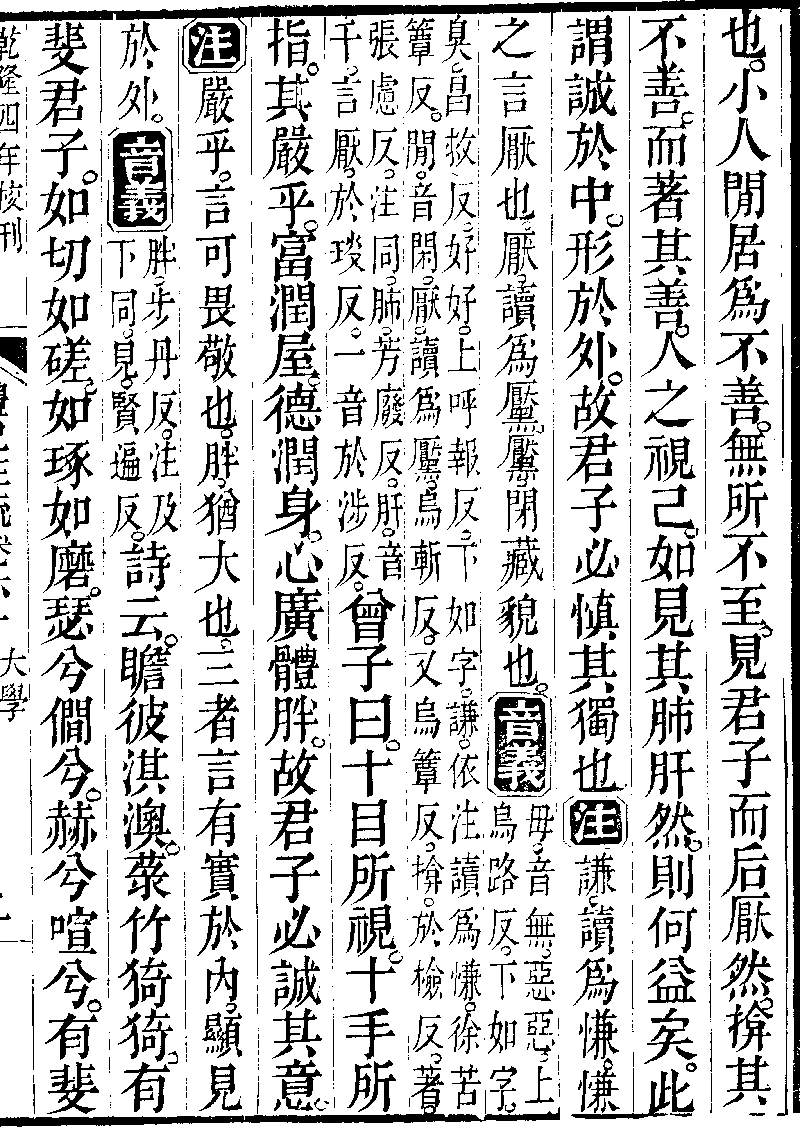 也。小人閒居爲不善。無所不至。見君子而后厭然。揜其
不善。而著其善。人之視己。如見其肺肝然。則何益矣。此
謂誠於中。形於外。故君子必慎其獨也注謙。讀爲慊。慊
之言厭也。厭。讀爲黶。黶。閉藏貌也。音義毋。音無。惡惡。上
烏路反。下如字。
臭。昌救反。好好。上呼報反。下如字。謙。依注讀爲慊。徐苦
簟反。閒。音閑。厭。讀爲黶。烏斬反。又烏簟反。揜。於檢反。著。
張慮反。注同。肺。芳廢反。肝。音
千。言厭。於琰反。一音於涉反。曾子曰。十目所視。十手所
指。其嚴乎。富潤屋。德潤身。心廣體胖。故君子必誠其意。
注嚴乎。言可畏敬也。胖。猶大也。三者言有實於內。顯見
於外。音義胖。步丹反。注及
下同。見。賢遍反。詩云。瞻彼淇澳。菉竹猗猗。有
斐君子。如切如磋。如琢如磨。瑟兮僩兮。赫兮喧兮。有斐
乾隆四年校刊
大學